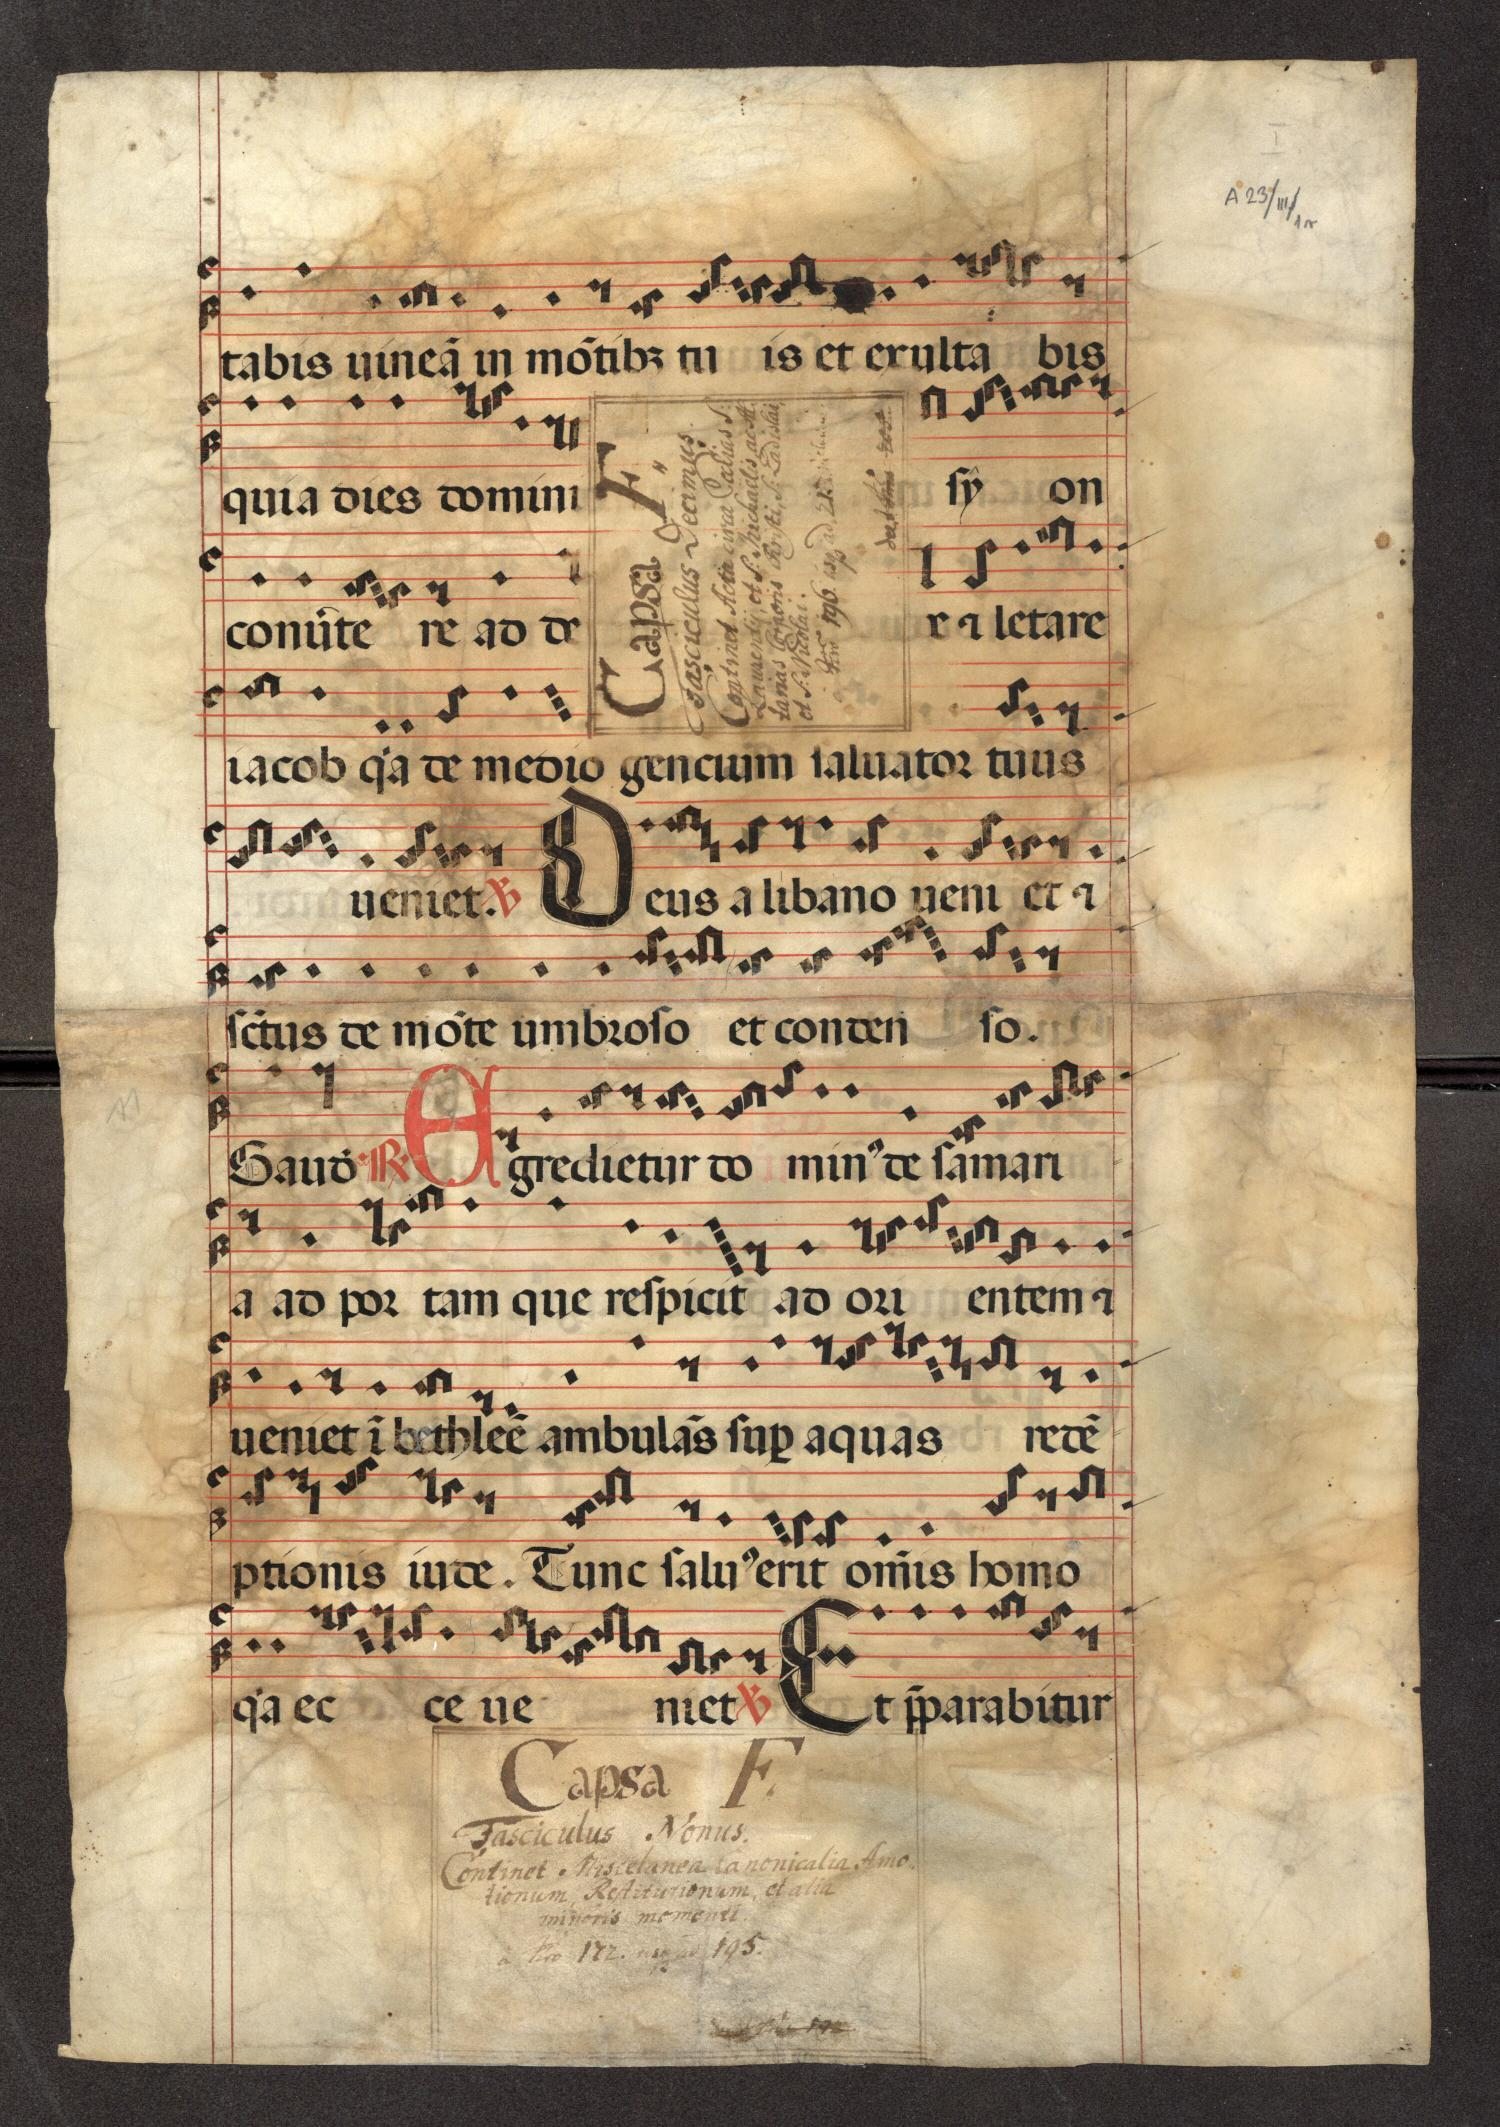 I
A 23/III/1r
tabis uineā in mōtibꝫ tu is et exulta bis
quia dies domini sy on
conũte re ad de r ⁊ letare
iacob qͥa de medio gencium saluator tuus
ueniet. ℣ Deus a libano ueni et ⁊
sc̄tus de mōte umbroso et conden so.
Gaud ℟ Egredietur do minꝰ de samari
a ad por tam que respicit ad ori entem ⁊
ueniet ī bethleē ambulās suꝑ aquas redē
ptionis iude. Tunc saluꝰ erit om̄is homo
qͥa ec ce ue niet ℣ Et p̄parabitur
Capsa F.
Fasciculus Decimus.
Continet Acta circa
et S. Michaelis
et S. Nicolai.
196.
Capsa F.
Fasciculus Nonus.
Continet Miscelanea Canonicalia Amo-
tionum, Restitutionum, et alia
minoris momenti.
a Nro 172. usq ad 195.